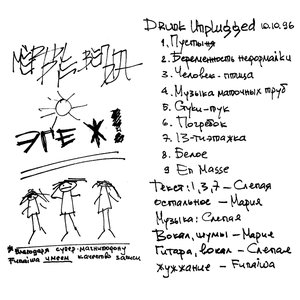 ЭГЕ Ж!
* благодаря супер-магнитофону
Funaiwa имеем качество записи
Drunk Unplugged 10.10.96
1. Пустыня
2. Беременность неформалки
3. Человек-птица
4. Музыка маточных труб
5. Стуки-тук
6. Погребок
7. 13-тиэтажка
8. Белое
9 En Masse
Текст: 1,3,7 – Слепая
остальное – Мария
Музыка: Слепая
Вокал, шумы – Мария
Гитара, вокал – Слепая
Жужжание – Funaiwa